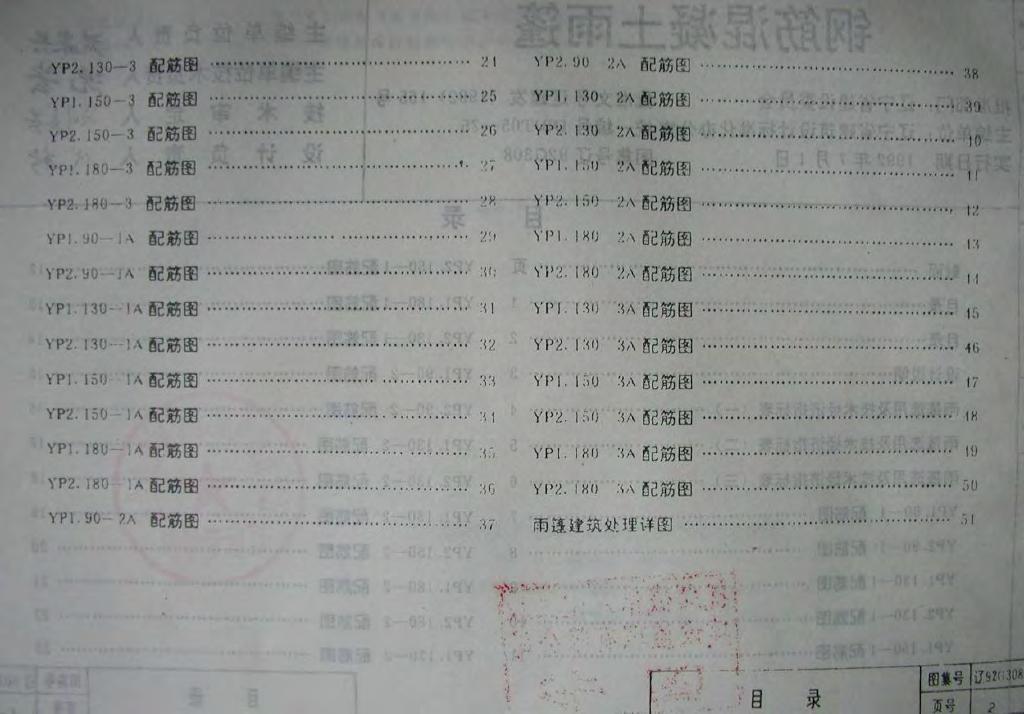 YP2.130-3 配筋图 24
YP1.150-3 配筋图 25
YP2.150-3 配筋图 26
YP1.180-3 配筋图 27
YP2.180-3 配筋图 28
YP1.90-1A 配筋图 29
YP2.90-1A 配筋图 30
YP1.130-1A 配筋图 31
YP2.130-1A 配筋图 32
YP1.150-1A 配筋图 33
YP2.150-1A 配筋图 34
YP1.180-1A 配筋图 35
YP2.180-1A 配筋图 36
YP1.90-2A 配筋图 37
YP2.90-2A 配筋图 38
YP1.130-2A 配筋图 39
YP2.130-2A 配筋图 40
YP1.150-2A 配筋图 41
YP2.150-2A 配筋图 42
YP1.180-2A 配筋图 43
YP2.180-2A 配筋图 44
YP1.130-3A 配筋图 45
YP2.130-3A 配筋图 46
YP1.150-3A 配筋图 47
YP2.150-3A 配筋图 48
YP1.180-3A 配筋图 49
YP2.180-3A 配筋图 50
雨篷建筑处理详图 51
目 录
图集号 辽92G308
页号 2